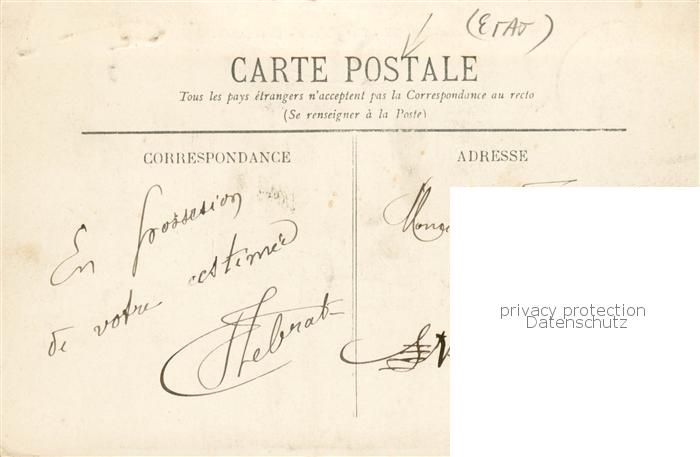 (ETAT)
CARTE POSTALE
Tous les pays étrangers n'acceptent pas la Correspondance au recto
(Se renseigner à la Poste)
CORRESPONDANCE
En possession
de votre estimée
ADRESSE
privacy protection
Datenschutz